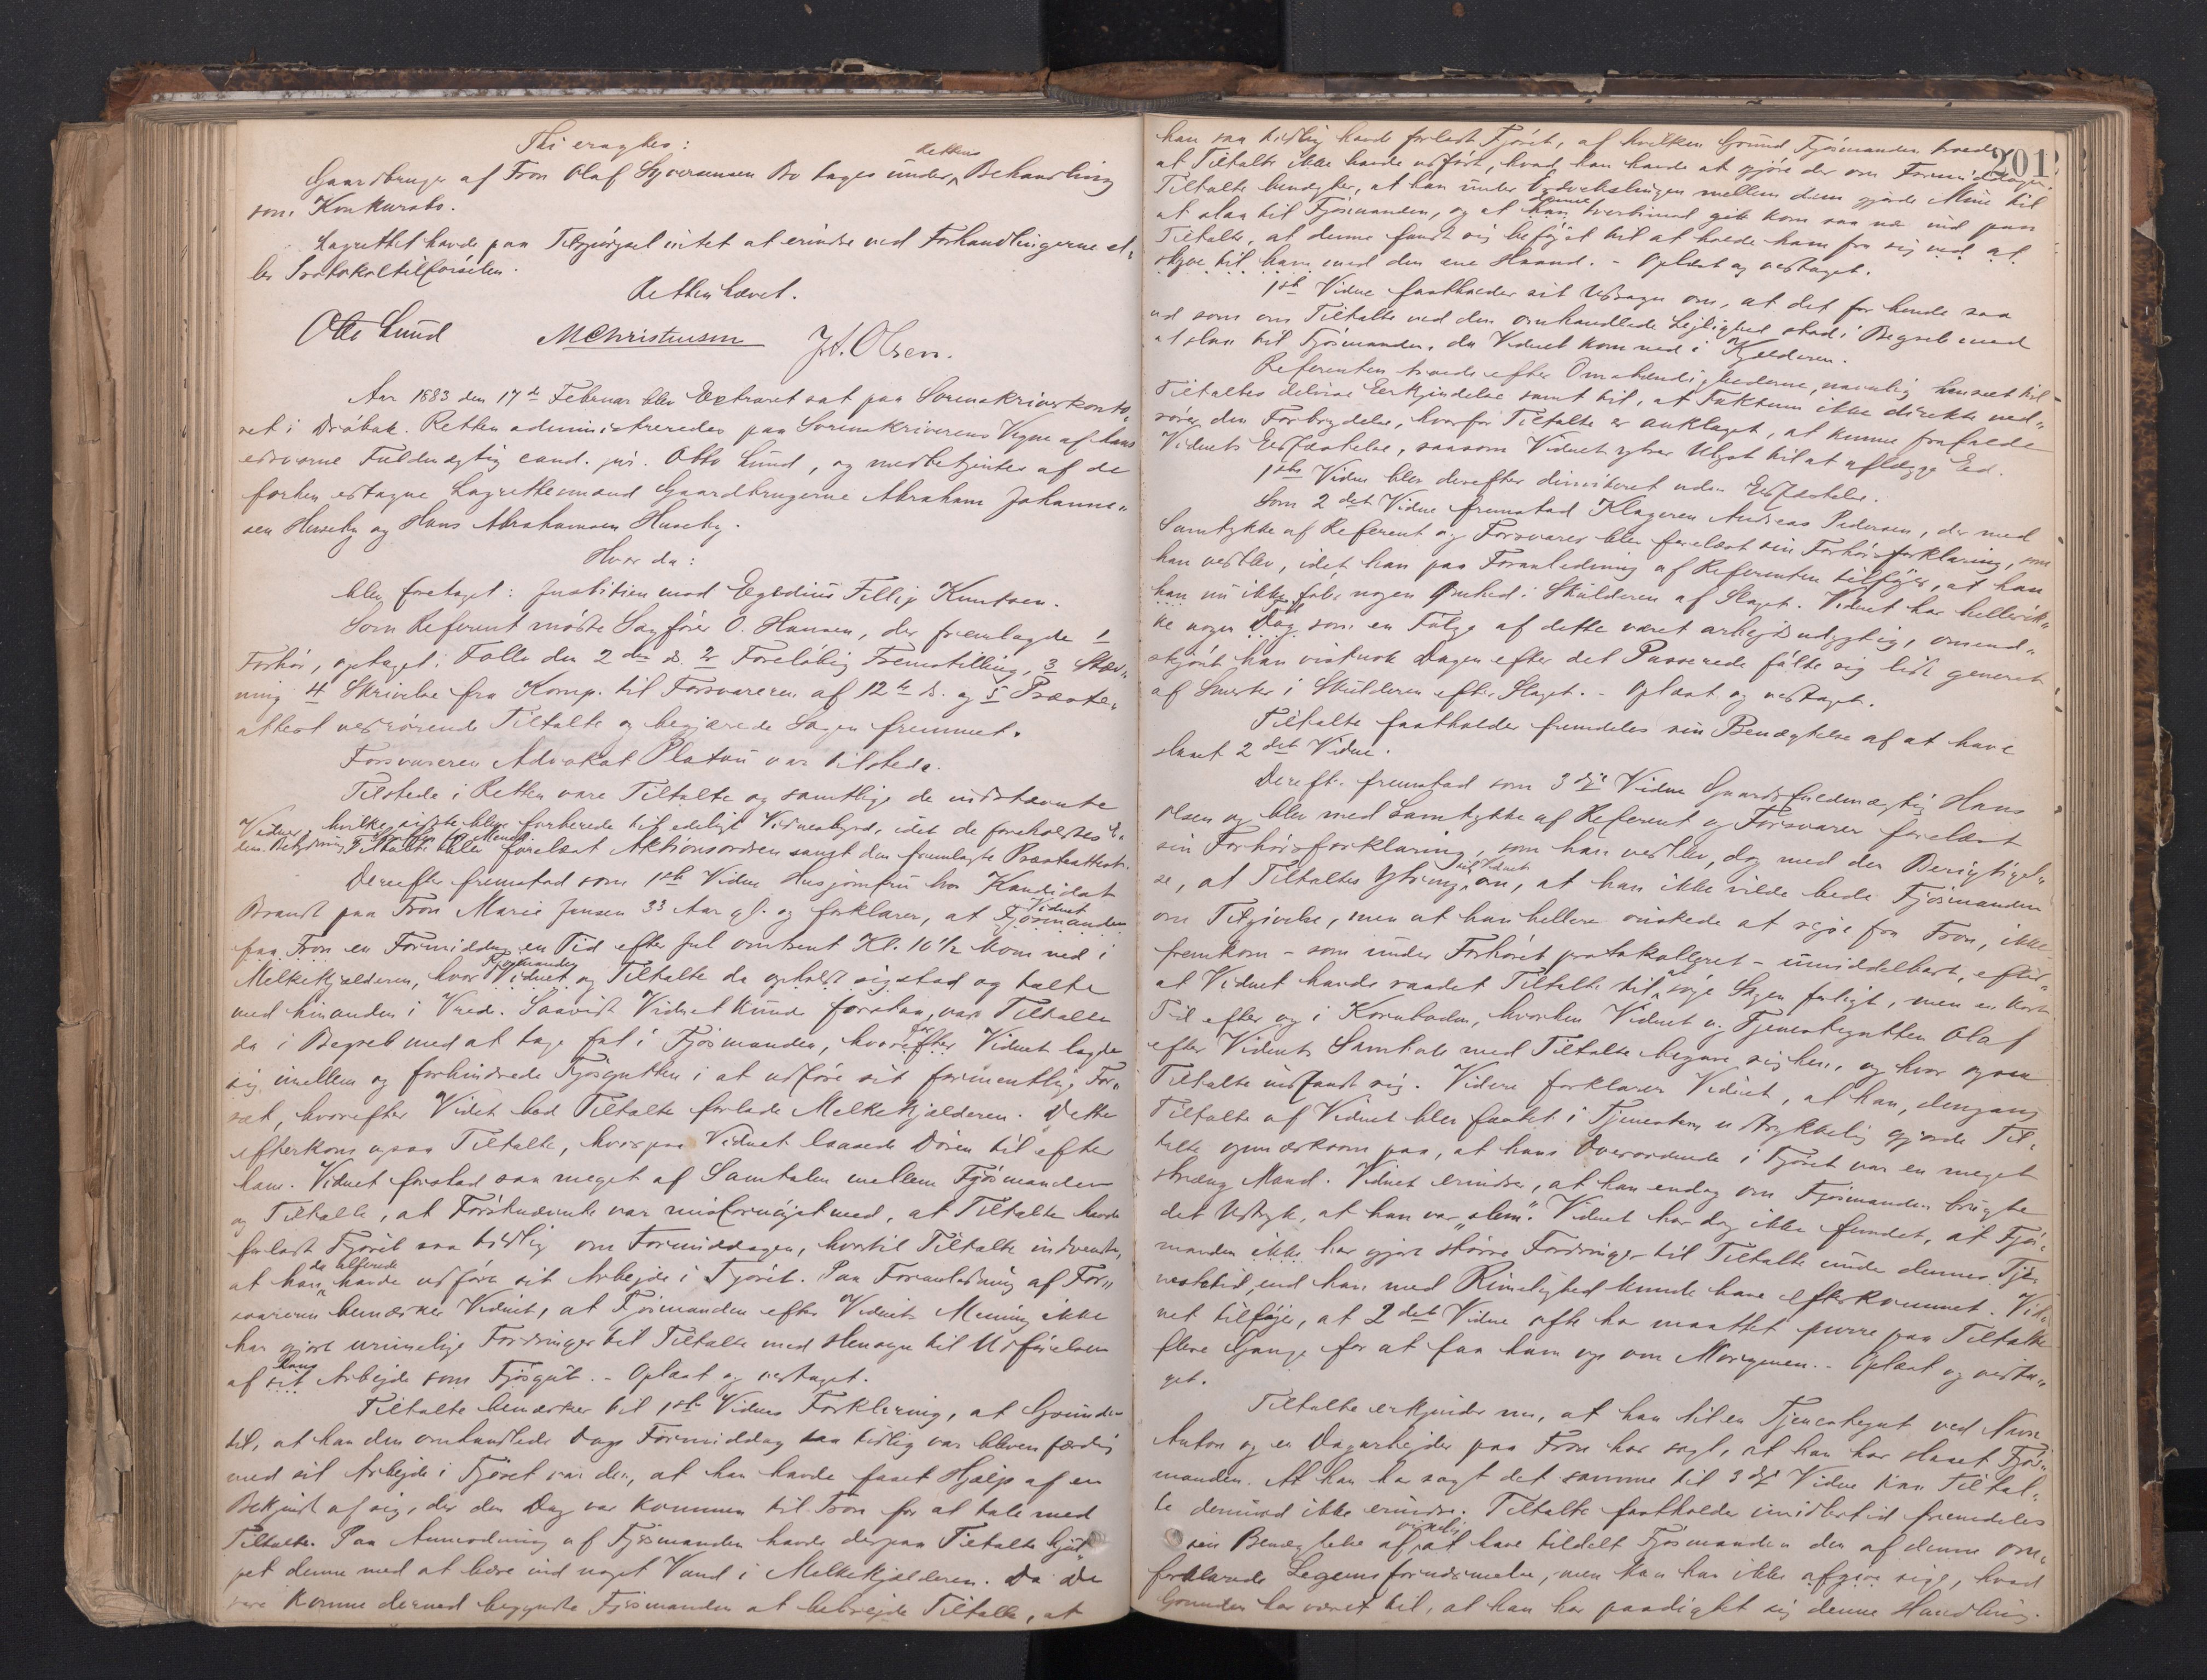 Thi eragtes:
Gaardbruger af Fron Olaf Syversensen Bo tages under Rettens Behandling
som Konkursbo.
Lagrettet havde paa Tilspørgsel intet at erindre ved Forhandlingerne el„
ler Protokoltilførselen.
Retten hævet.
Otto Lund MChristensen J.A. Olsen.
Aar 1883 den 17de Februar blev Extraret sat paa Sorenskriverkonto„
ret i Drøbak. Retten administreredes paa Sorenskriverens Vegne af hans
edsvorne Fuldmægtig cand. jur. Otto Lund, og medbetjentes af de
forhen edtagne Lagrettemænd Gaardbrugerne Abraham Johannes„
sen Huseby og Hans Abrahamsen Huseby.
Hvor da:
blev foretaget: Justitien mod Egedius Fillip Knutsen.
Som Referent mødte Sagfører O. Hansen, der fremlagde 1
Forhør, optaget i Follo den 2den ds. 2 Foreløbig Fremstilling, 3 Stæv„
ning 4 Skrivelse fra Komp. til Forsvareren af 12te ds. og 5 Præste„
attest vedrørende Tiltalte og begjærede Sagen fremmet.
Forsvareren Advokat Platou var tilstede.
Tilstede i Retten vare Tiltalte og samtlige de indstævnte
Vidner, hvilke sidste blev forberede til edeligt Vidnesbyrd, idet de foreholdtes E„
dens Betydning. Tiltalte blev forelæst Aktionsordren samt den fremlagte Præsteattest.
Derefter fremstod som 1ste Vidne Husjomfru hos Kandidat
Brandt paa Fron Marie Jensen 33 Aar gl. og forklarer, at Vidnet Fjøsmanden
paa Fron en Formiddag en Tid efter Jul omtrent Kl. 10 1/2 kom ned i
Melkekjælderen, hvor Fjøsmanden Vidnet og Tiltalte da opholdt sig stod og talte
med hinanden i Vrede. Saavidt Vidnet kunde forstaa, var Tiltalte
da i Begreb med at tage fat i Fjøsmanden, hvorefter Vidnet lagde
sig imellem og forhindrede Fjøsgutten i at udføre sit formentlige For„
sæt, hvorefter Vidnet bad Tiltalte forlade Melkekjælderen. Dette
efterkom ogsaa Tiltalte, hvorpaa Vidnet laasede Døren til efter
ham. Vidnet forstod saa meget af Samtalen mellem Fjøsmanden
og Tiltalte, at Førstnævnte var misfornøiet med, at Tiltalte havde
forladt Fjøset saa tidlig om Formiddagen, hvortil Tiltalte indvendte,
at han da allerede havde udført sit Arbejde i Fjøset. Paa Foranledning af For„
svareren bemærker Vidnet, at Fjøsmanden efter Vidnets Mening ikke
har gjort urimelige Fordringer til Tiltalte med Hensyn til Udførelsen
af hans sit Arbejde som Fjøsgut. - Oplæst og vedtaget.
Tiltalte bemærker til 1ste Vidnes Forklaring, at Grunden
til, at han den omhandlede Dags Formiddag saa tidlig var bleven færdig
med sit Arbejde i Fjøset var den, at han havde faaet Hjælp af en
Bekjendt af sig, der den Dag var kommen til Fron for at tale med
Tiltalte. Paa Anmodning af Fjøsmanden havde derpaa Tiltalte hjul„
pet denne med at bære ind noget Vand i Melkekjælderen. Da De
vare komne derned begyndte Fjøsmanden at bebrejde Tiltalte, at
201
han saa tidlig havde forladt Fjøset, af hvilken Grund Fjøsmanden troede
at Tiltalte ikke havde udført, hvad han havde at gjøre der om Formiddagen.
Tiltalte benægter, at han under Ordvekslingen mellem dem gjorde Mine til
at slaa til Fjøsmanden, og at denne han tvertimod gik kom saa nær ind paa
Tiltalte, at denne fandt sig beføjet til at holde ham fra sig ved at
skyve til ham med den ene Haand. - Oplæst og vedtaget.
1ste Vidne fastholder sit Udsagn om, at det for hende saa
ud som om Tiltalte ved den omhandlede Lejlighed stod i Begreb med
at slaa til Fjøsmanden, da Vidnet kom ned i Kjælderen.
Referenten troede efter Omstændighederne, navnlig henseet til
Tiltaltes delvise Erkjendelse samt til, at Faktum ikke direkte ved„
rører den Forbrydelse, hvorfor Tiltalte er anklaget, at kunne frafalde
Vidnets Edfæstelse, saasom Vidnet ytrer Ulyst til at aflægge Ed.
1ste Vidne blev derefter dimiteret uden Edfæstelse.
Som 2det Vidne fremstod Klageren Andreas Pedersen, der med
Samtykke af Referent og Forsvarer blev forelæst sin Forhørsforklaring, som
han vedblev, idet han paa Foranledning af Referenten tilføjer, at han
han nu ikke føler nogen Ømhed i Skulderen af Slaget. Vidnet har hellerik„
ke nogen Tid Dag som en Følge af dette været arbejdsudygtig, omend„
skjønt han vistnok Dagen efter det Passerede følte sig lidt generet
af Smerter i Skulderen efter Slaget. - Oplæst og vedtaget.
Tiltalte fastholder fremdeles sin Benægtelse af at have
slaaet 2det Vidne.
Dereft. fremstod som 3die Vidne Gaardsfuldmægtig Hans
Olsen og blev med Samtykke af Referent og Forsvarer forelæst
sin Forhørsforklaring, som han vedblev, dog med den Berigtigel„
se, at Tiltaltes Ytring til Vidnet om, at han ikke vilde bede Fjøsmanden
om Tilgivelse, men at han hellere ønskede at rejse fra Fron, ikke
fremkom - som under Forhøret protokolleret - umiddelbart, efter
at Vidnet havde raadet Tiltalte til at søge Sagen forligt, men en kort
Tid efter og i Kornboden, hvorhen Vidnet og Tjenestegutten Olaf
efter Vidnets Samtale med Tiltalte begave sig hen, og hvor ogsaa
Tiltalte indfandt sig. Videre forklarer Vidnet, at han, dengang
Tiltalte af Vidnet blev fæstet i Tjenesten udtrykkelig gjorde Til„
talte opmærksom paa, at hans Overordnede i Fjøset var en meget
streng Mand. Vidnet erindrer, at han endog om Fjøsmanden brugte
det Udtryk, at han var „slem“. Vidnet har dog ikke fundet, at Fjøs„
manden ikke har gjort større Fordringer til Tiltalte under dennes Tje„
nestetid, end han med Rimelighed kunde have efterkommet. Vid„
net tilføjer, at 2det Vidne ofte har maattet purre paa Tiltalte
flere Gange for at faa ham op om Morgenen. - Oplæst og vedta„
get.
Tiltalte erkjender nu, at han til en Tjenestegut ved Navn
Anton og en Dagarbejder paa Fron har sagt, at han har slaaet Fjøs„
manden. At han har sagt det samme til 3die Vidne kan Tiltal„
te derimod ikke erindre. Tiltalte fastholder imidlertid fremdeles
sin Benægtelse af virkelig at have tildelt Fjøsmanden den af denne om„
forklarede Legemsfornærmelse, men han kan ikke opgive sige, hvad
Grunden har været til, at han har paadigtet sig denne Handling.